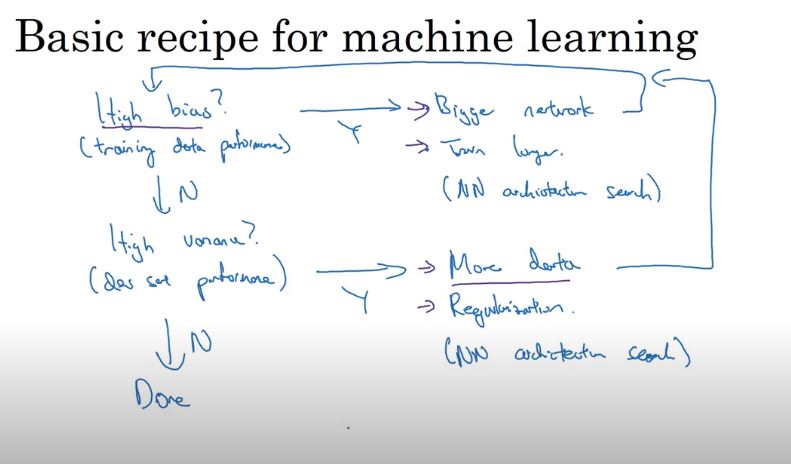 Basic recipe for machine learning
High bias?
(training data performance)
Y
Bigger network
Train longer.
(NN architecture search)
N
High variance?
(dev set performance)
Y
More data
Regularization.
(NN architecture search)
N
Done